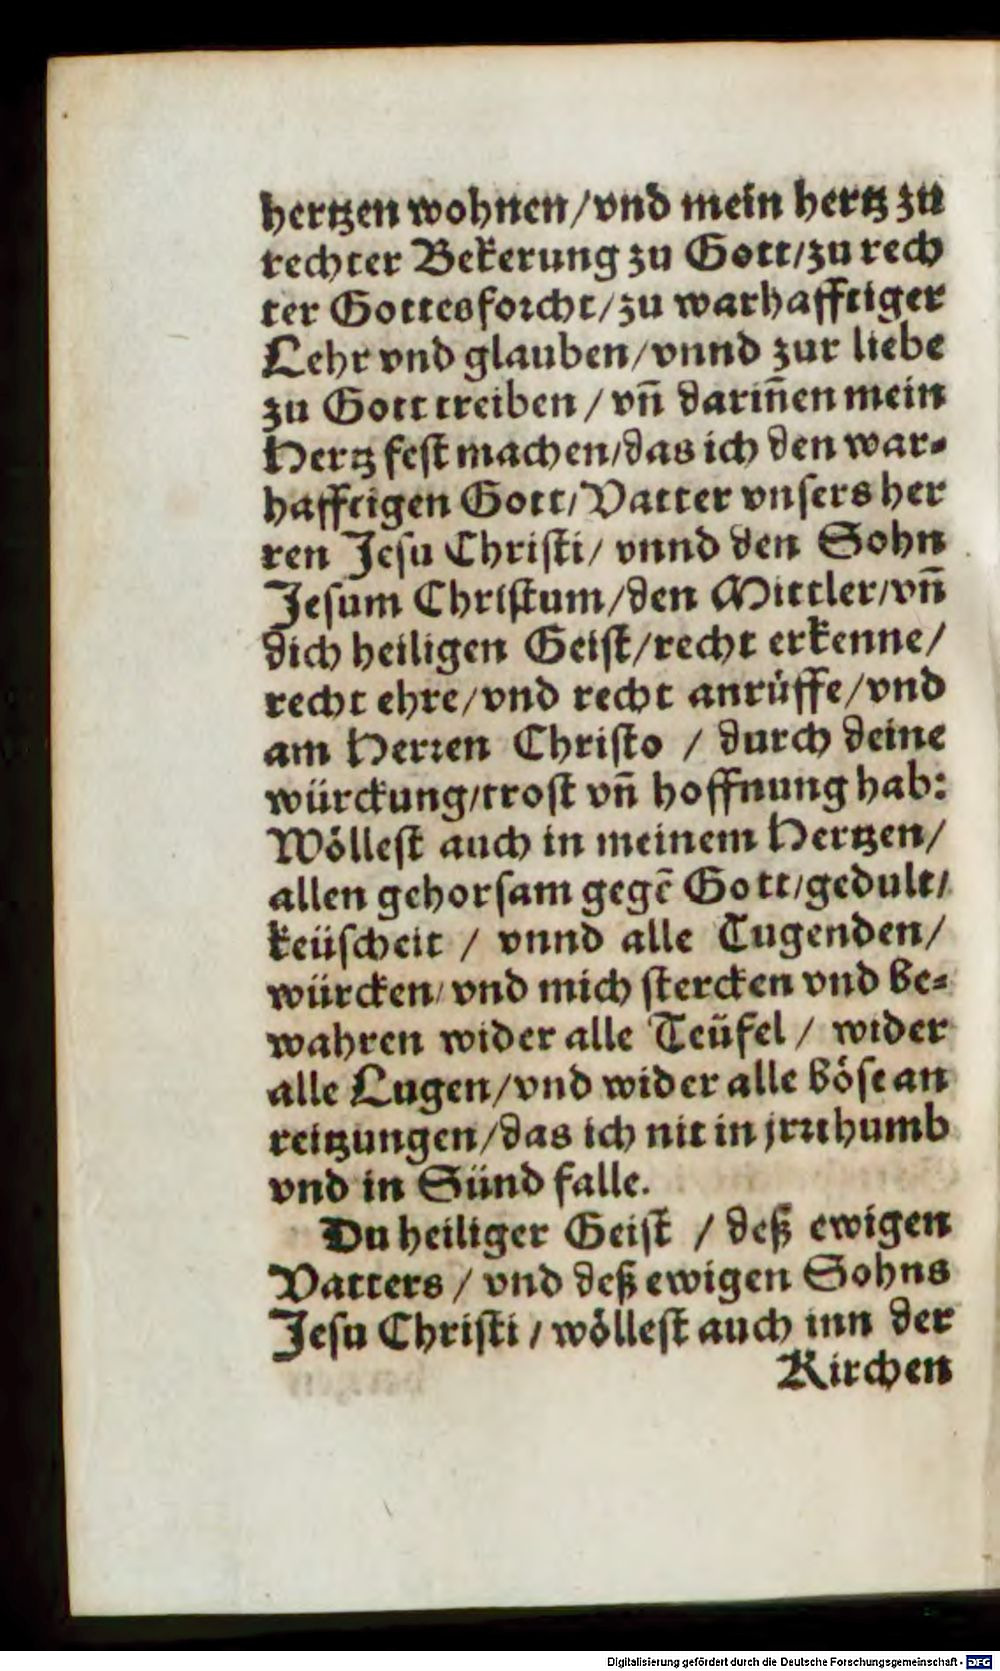 hertzen wohnen/vnd mein hertz zu
rechter Bekerung zu Gott/zu rech
ter Gottesforcht/zu warhafftiger
Lehr vnd glauben/vnnd zur liebe
zu Gott treiben/vn̄ darin̄en mein
Hertz fest machen/das ich den war-
hafftigen Gott/Vatter vnsers her
ren Jesu Christi/vnnd den Sohn
Jesum Christum/den Mittler/vn̄
dich heiligen Geist/recht erkenne/
recht ehre/vnd recht anrüffe/vnd
am Herren Christo / durch deine
würckung/trost vn̄ hoffnung hab:
Wöllest auch in meinem Hertzen/
allen gehorsam gegē Gott/gedult/
keüscheit / vnnd alle Tugenden/
würcken/vnd mich stercken vnd be-
wahren wider alle Teüfel / wider
alle Lugen/vnd wider alle böse an
reitzungen/das ich nit in jrrthumb
vnd in Sünd falle.
Du heiliger Geist / deß ewigen
Vatters / vnd deß ewigen Sohns
Jesu Christi / wöllest auch inn der
Kirchen
Digitalisierung gefördert durch die Deutsche Forschungsgemeinschaft - DFG